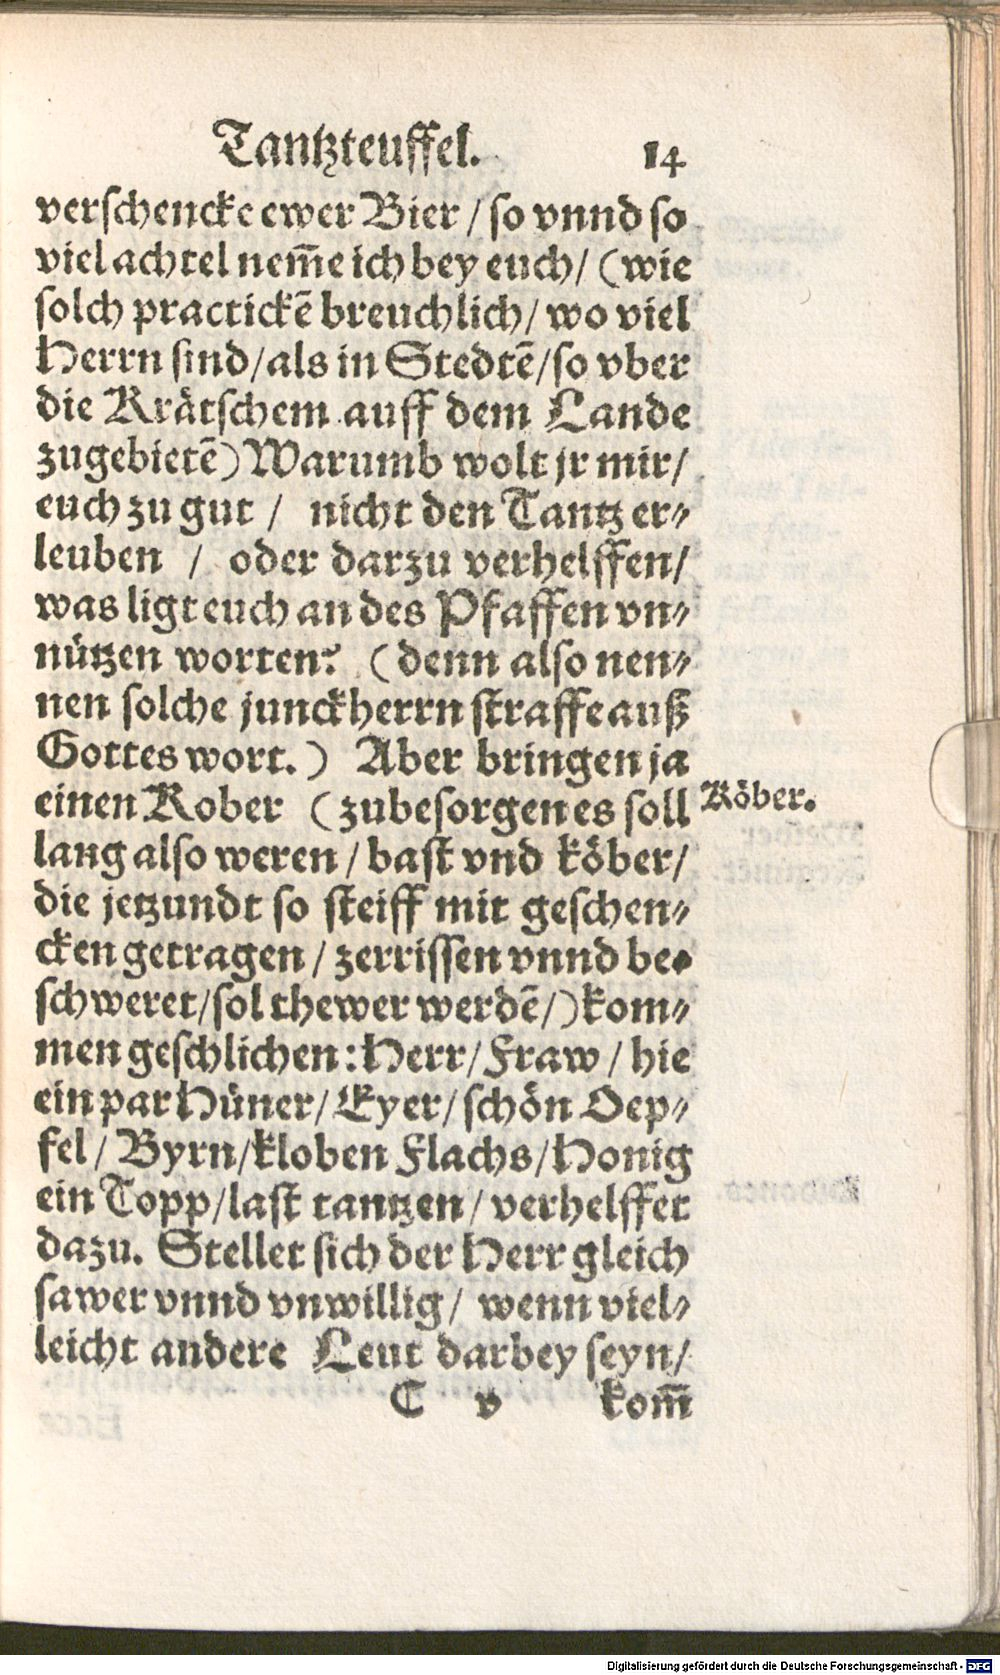 Tantzteuffel. 14
verschencke ewer Bier / so vnnd so
viel achtel nem̃e ich bey euch / (wie
solch practickẽ breuchlich / wo viel
Herrn sind / als in Stedtẽ / so vber
die Krätschem auff dem Lande
zugebietẽ) Warumb wolt jr mir /
euch zu gut / nicht den Tantz er⸗
leuben / oder darzu verhelffen /
was ligt euch an des Pfaffen vn⸗
nützen worten? (denn also nen⸗
nen solche junckherrn straffe auß
Gottes wort.) Aber bringen ja
einen Kober (zubesorgen es soll
Köber.
lang also weren / bast vnd köber /
die jetzundt so steiff mit geschen⸗
cken getragen / zerrissen vnnd be⸗
schweret / sol thewer werdẽ /) kom⸗
men geschlichen: Herr / Fraw / hie
ein par Hüner / Eyer / schön Oep⸗
fel / Byrn / kloben Flachs / Honig
ein Topp / last tantzen / verhelffet
dazu. Stellet sich der Herr gleich
sawer vnnd vnwillig / wenn viel⸗
leicht andere Leut darbey seyn /
C v kom̃
Digitalisierung gefördert durch die Deutsche Forschungsgemeinschaft - DFG